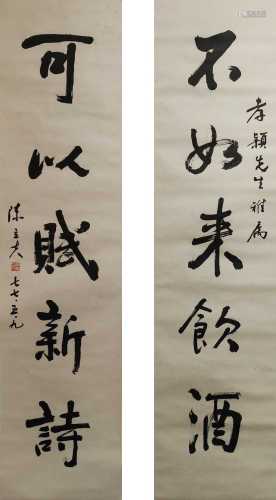 不如来飲酒
孝穎先生雅属
可以賦新詩
陳立夫
七七.五.九